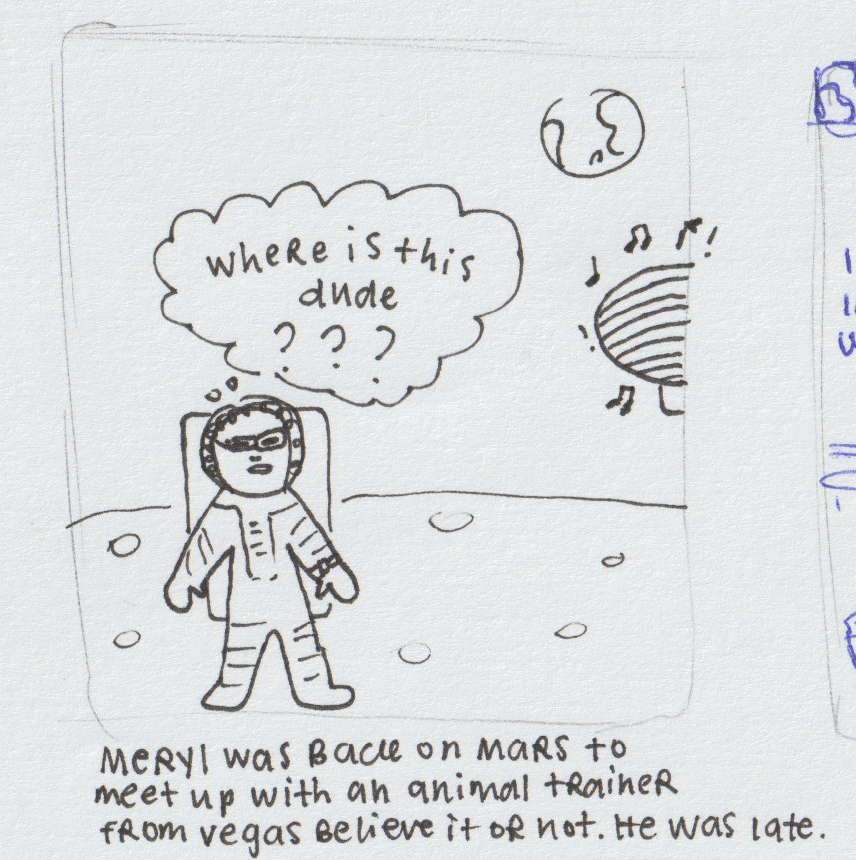 where is this
dude
? ? ?
Meryl was Back on Mars to
meet up with an animal trainer
from vegas Believe it or not. He was late.